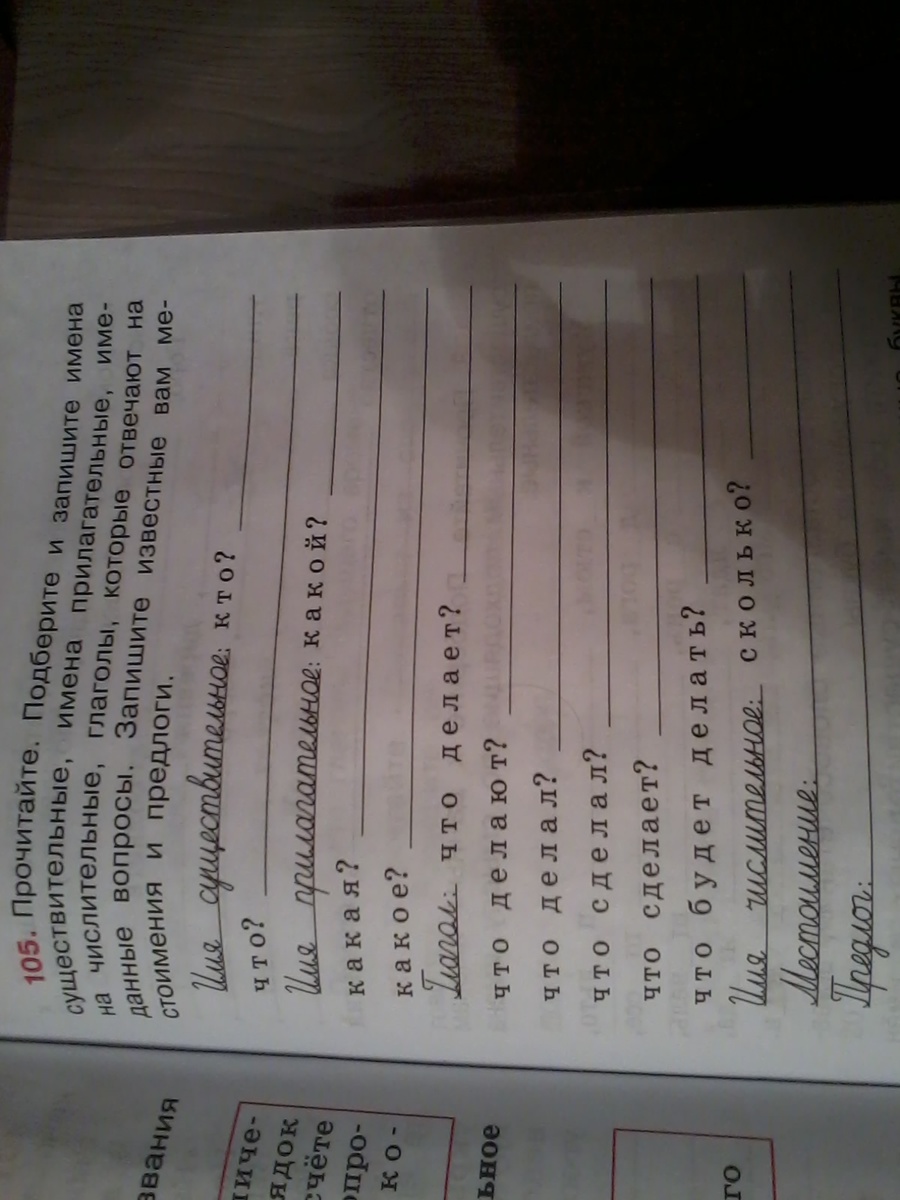 105. Прочитайте. Подберите и запишите имена
существительные, имена прилагательные, име-
на числительные, глаголы, которые отвечают на
данные вопросы. Запишите известные вам ме-
стоимения и предлоги.
Имя существительное: кто?
что?
Имя прилагательное: какой?
какая?
какое?
Глагол: что делает?
что делают?
что делал?
что сделал?
что сделает?
что будет делать?
Имя числительное: сколько?
Местоимение:
Предлог:
буквы
звания
ниче-
ядок
счёте
опро-
ко-
ьное
го